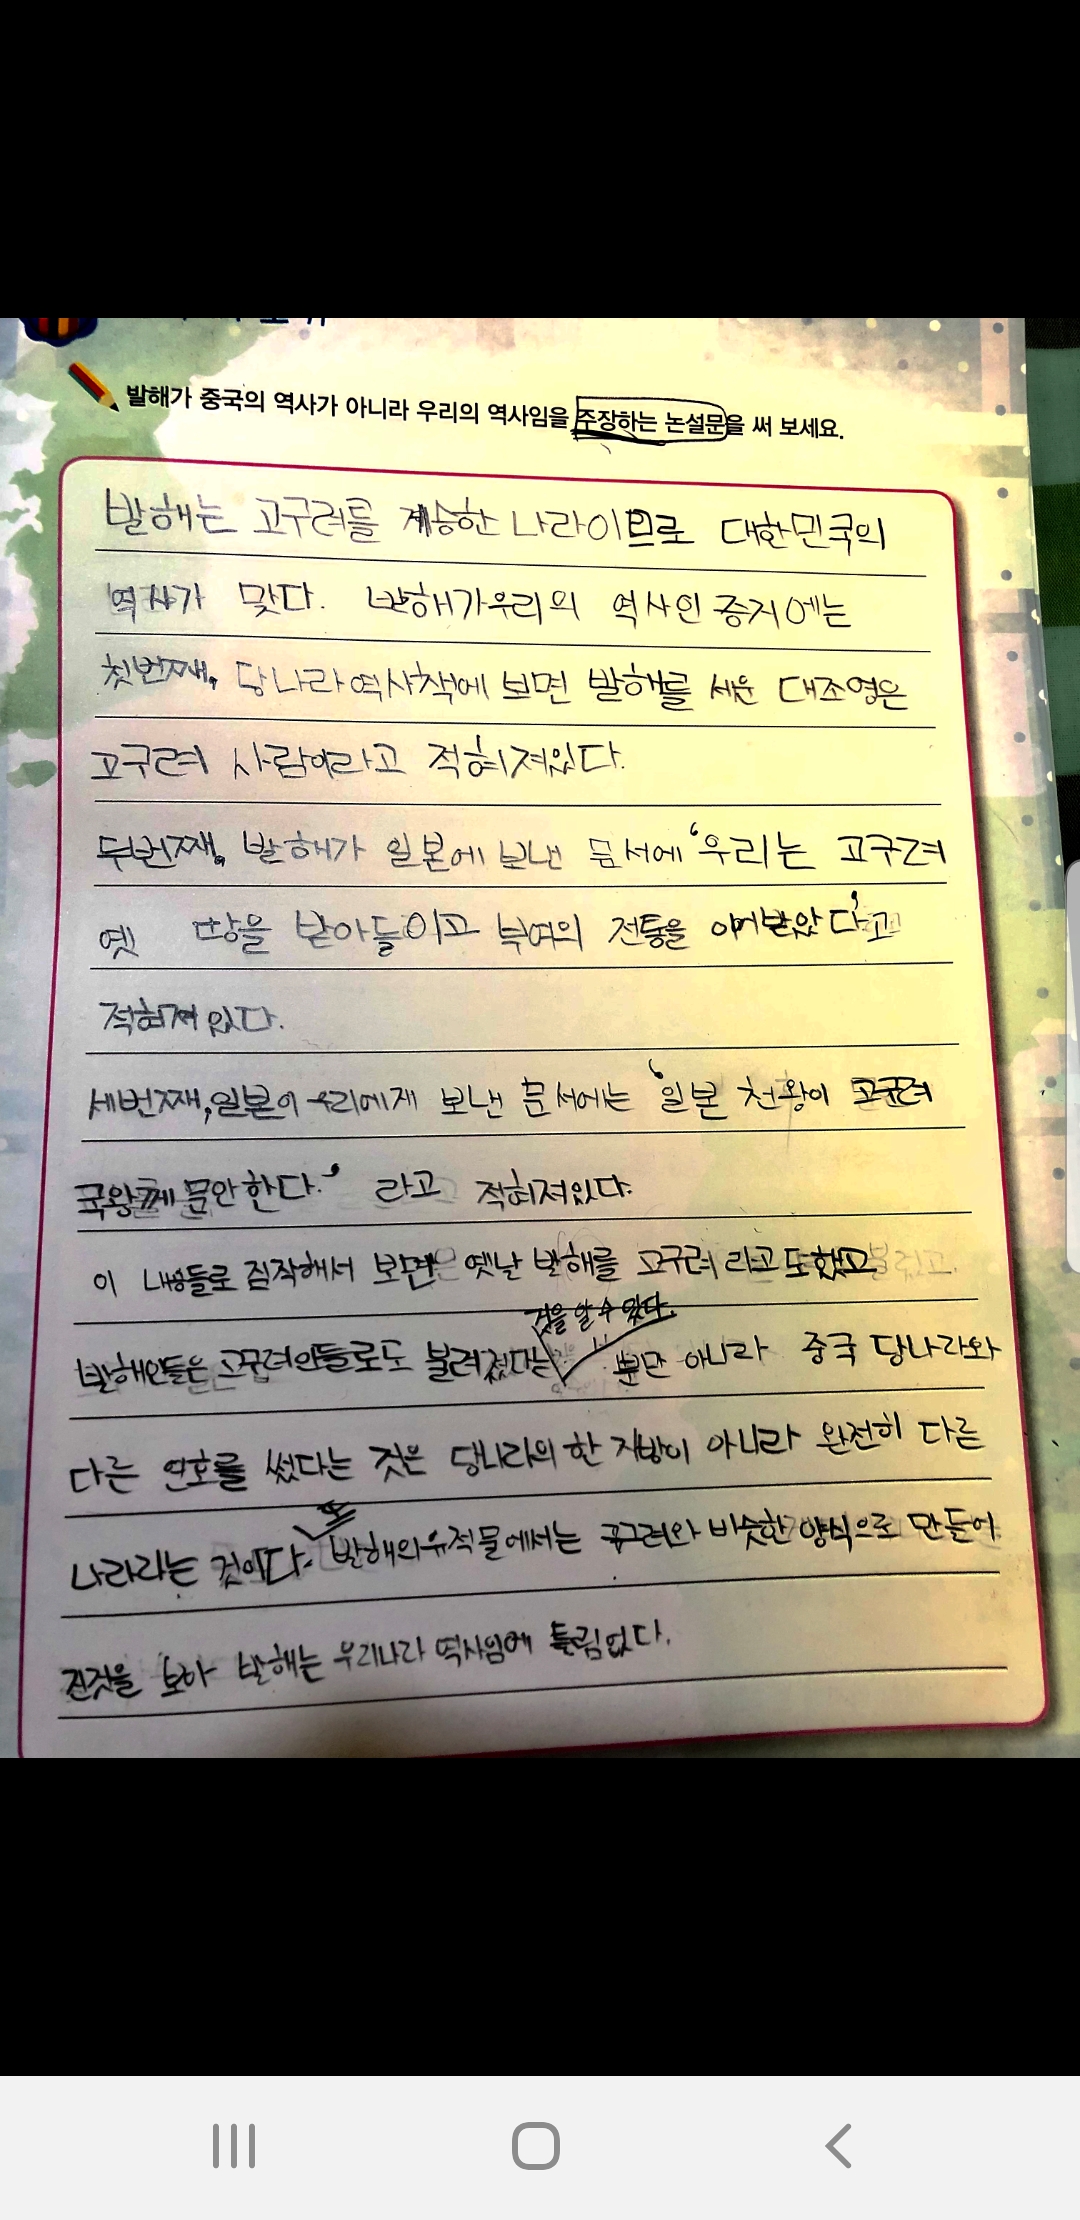 발해가 중국의 역사가 아니라 우리의 역사임을 주장하는 논설문을 써 보세요.
발해는 고구려를 계승한 나라이므로 대한민국의
역사가 맞다. 발해가 우리의 역사인 증거에는
첫번째, 당나라 역사책에 보면 발해를 세운 대조영은
고구려 사람이라고 적혀져있다.
두번째, 발해가 일본에 보낸 문서에 '우리는 고구려
옛 땅을 받아들이고 부여의 전통을 이어받았다'고
적혀져 있다.
세번째, 일본이 우리에게 보낸 문서에는 '일본 천왕이 고구려
국왕께 문안한다.' 라고 적혀져있다.
이 내용들로 짐작해서 보면 옛날 발해를 고구려 라고도 했고
것을 알 수 있다.
발해인들은 고구려인들로도 불려졌다는 뿐만 아니라 중국 당나라와
다른 연호를 썼다는 것은 당나라의 한 지방이 아니라 완전히 다른
또
나라라는 것이다. 발해의 유적물에서는 고구려와 비슷한 양식으로 만들어
진것을 보아 발해는 우리나라 역사임에 틀림없다.